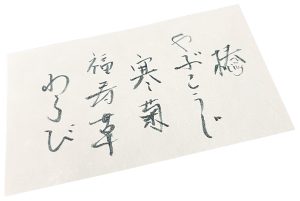 椿
やぶこうじ
寒菊
福寿草
わらび